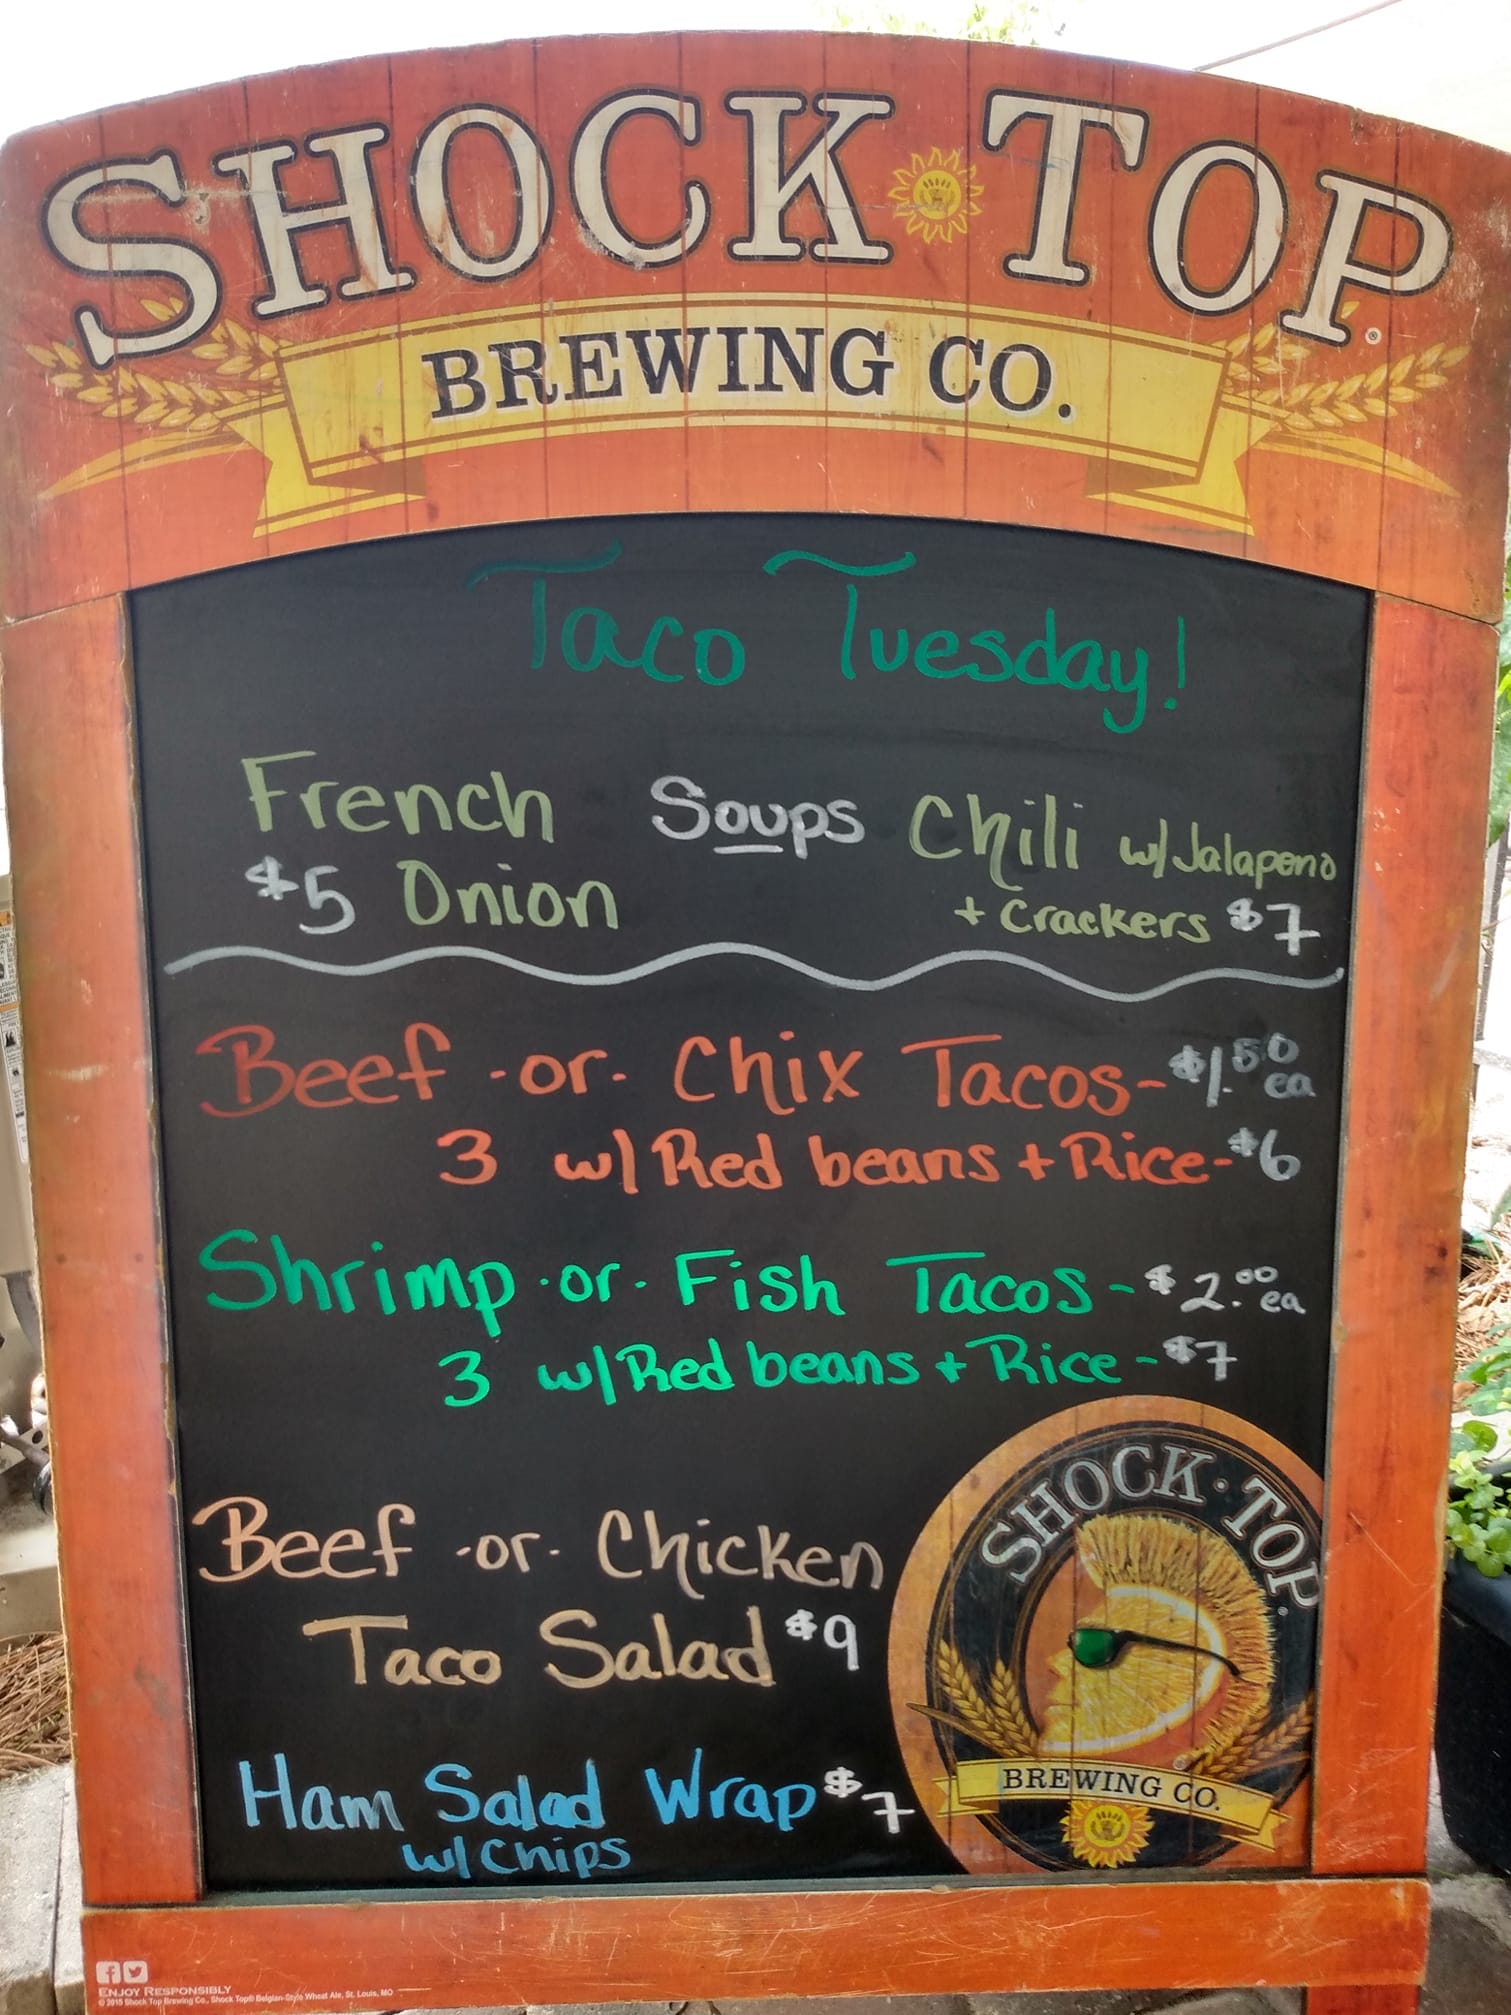 SHOCK TOP
BREWING CO.
Taco Tuesday!
Soups
French
$5 Onion
Chili w/Jalapeno
+ Crackers $7
Beef -or- Chix Tacos-$1.50 ea
3 w/ Red beans + Rice-$6
Shrimp -or- Fish Tacos-$2.00 ea
3 w/ Red beans + Rice-$7
Beef -or- Chicken
Taco Salad $9
Ham Salad Wrap $7
w/ Chips
SHOCK·TOP
BREWING CO.
ENJOY RESPONSIBLY
© 2015 Shock Top Brewing Co., Shock Top® Belgian-Style Wheat Ale, St. Louis, MO